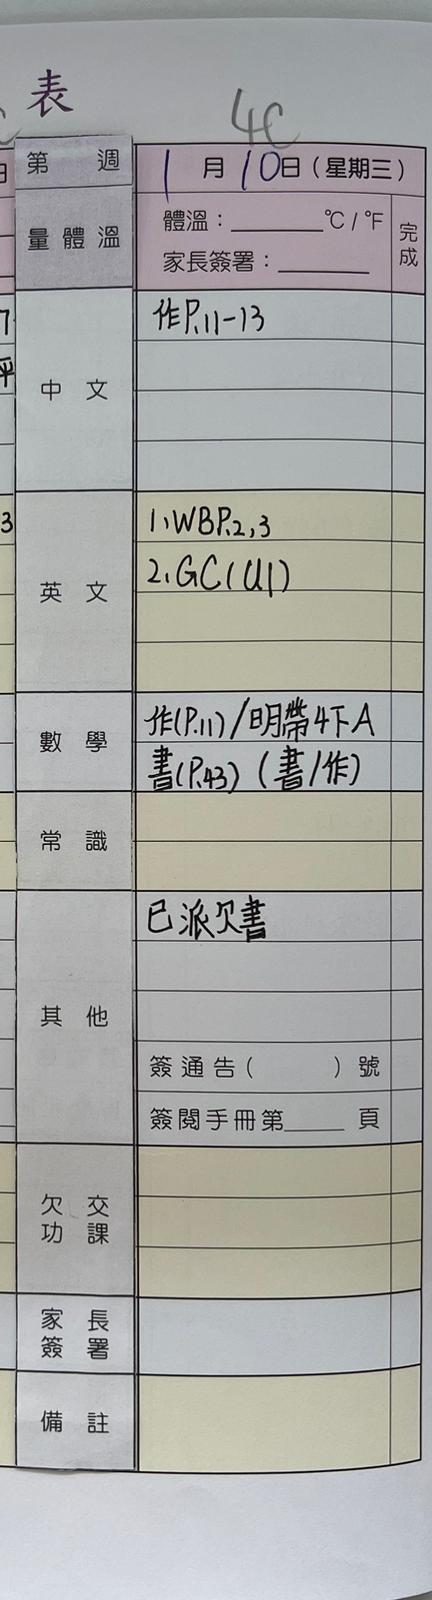 表
4C
第 週
1月10日(星期三)
量體溫
體溫:______℃/℉
家長簽署:______
完成
中文
作P.11-13
英文
1、WBP.2,3
2、GC(U1)
數學
作(P.11)/明帶4下A
書(P.43)(書/作)
常識
其他
已派欠書
簽通告( )號
簽閱手冊第____頁
欠交功課
家長簽署
備註